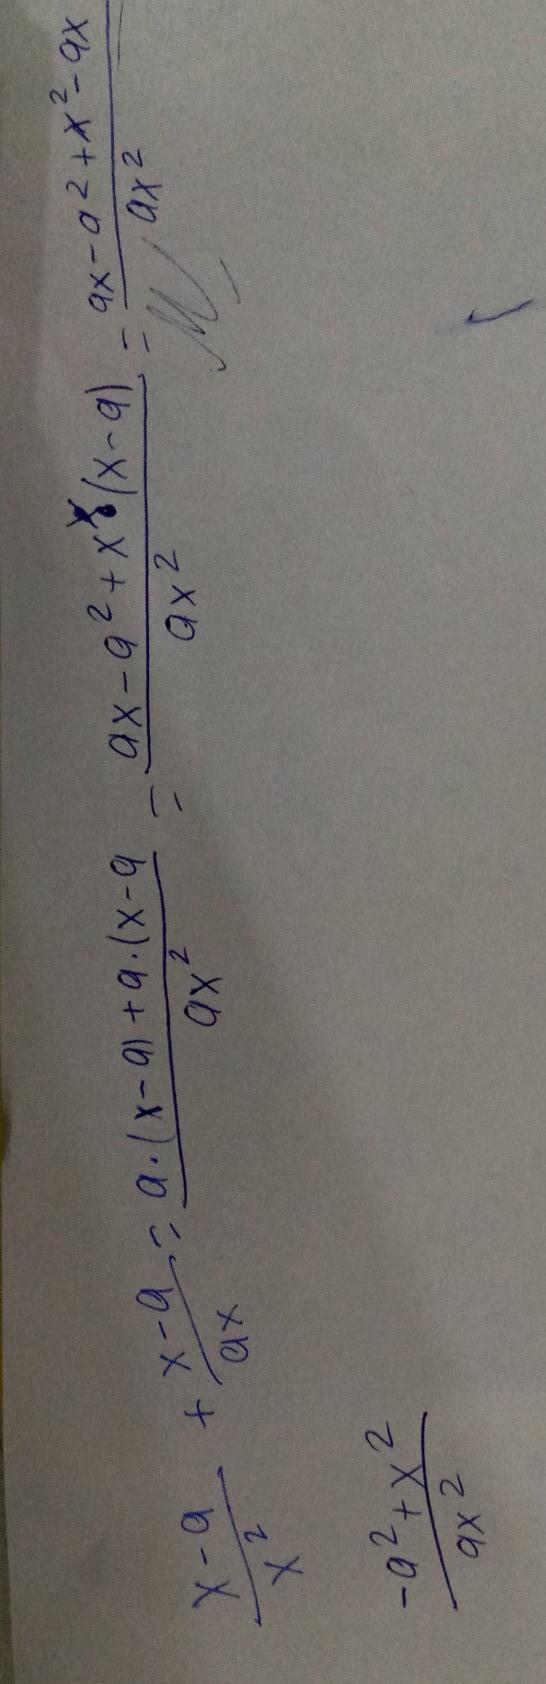 x-a/x² + x-a/ax = a·(x-a)+a·(x-a/ax² = ax-a²+x(x-a)/ax² = ax-a²+x²-ax/ax²
-a²+x²/ax²